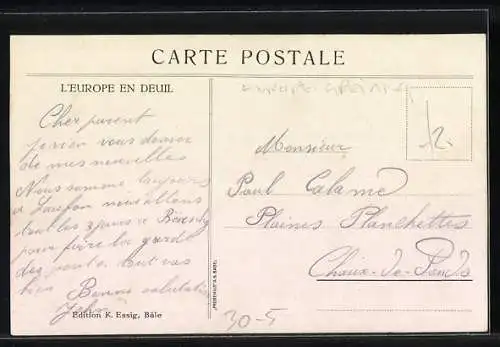 CARTE POSTALE
L'EUROPE EN DEUIL
Cher parent
je vien vous donner
de mes nouvelles
Nous somme toujours
a Laufon nous allons
tout les 3 jours a
pour faire la garde
des tout vas
bien Bonne salutation
Edition K. Essig, Bâle
12.
Monsieur
Paul Calame
Plaines Planchettes
Chaux-de-Fonds
30-5